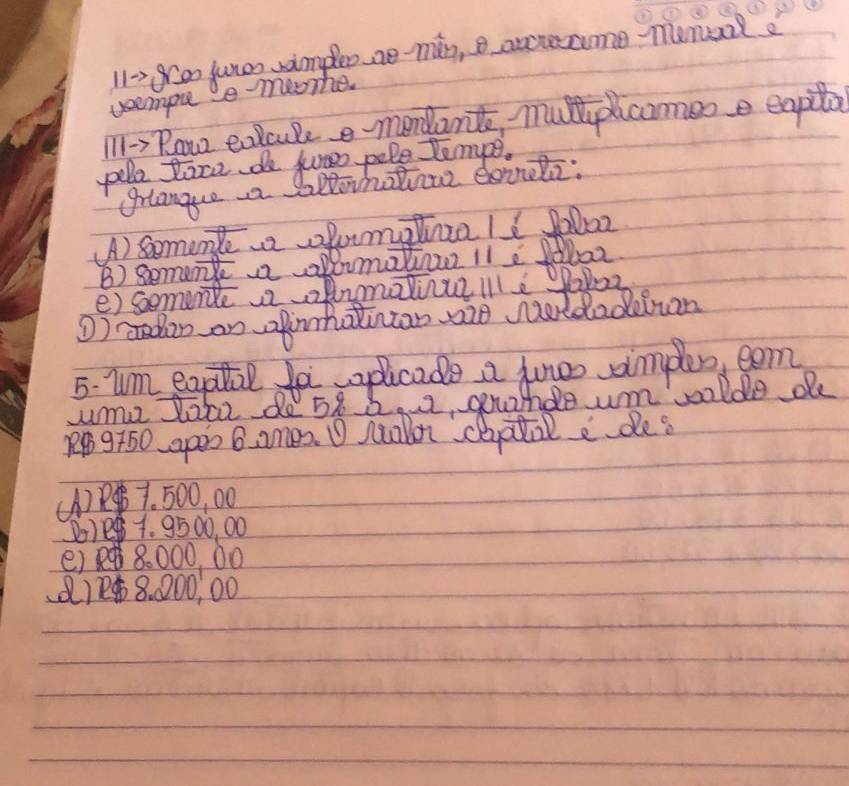 II→ Nos juros simples ao mês, o acréscimo mensal é
sempre o mesmo.
III→ Para calcule o montante, multiplicamos o capital
pela taxa de juros pelo tempo.
Marque a alternativa correta:
(A) Somente a afirmativa I é falsa
B) Somente a afirmativa II é falsa
c) Somente a afirmativa III é falsa
D) Todas as afirmativas são verdadeiras
5- Um capital foi aplicado a juros simples, com
uma taxa de 5% a.a, gerando um saldo de
R$ 9750 após 6 anos. O valor capital é de:
(A) R$ 7.500,00
b) R$ 7.9500,00
c) R$ 8.000,00
d) R$ 8.200,00